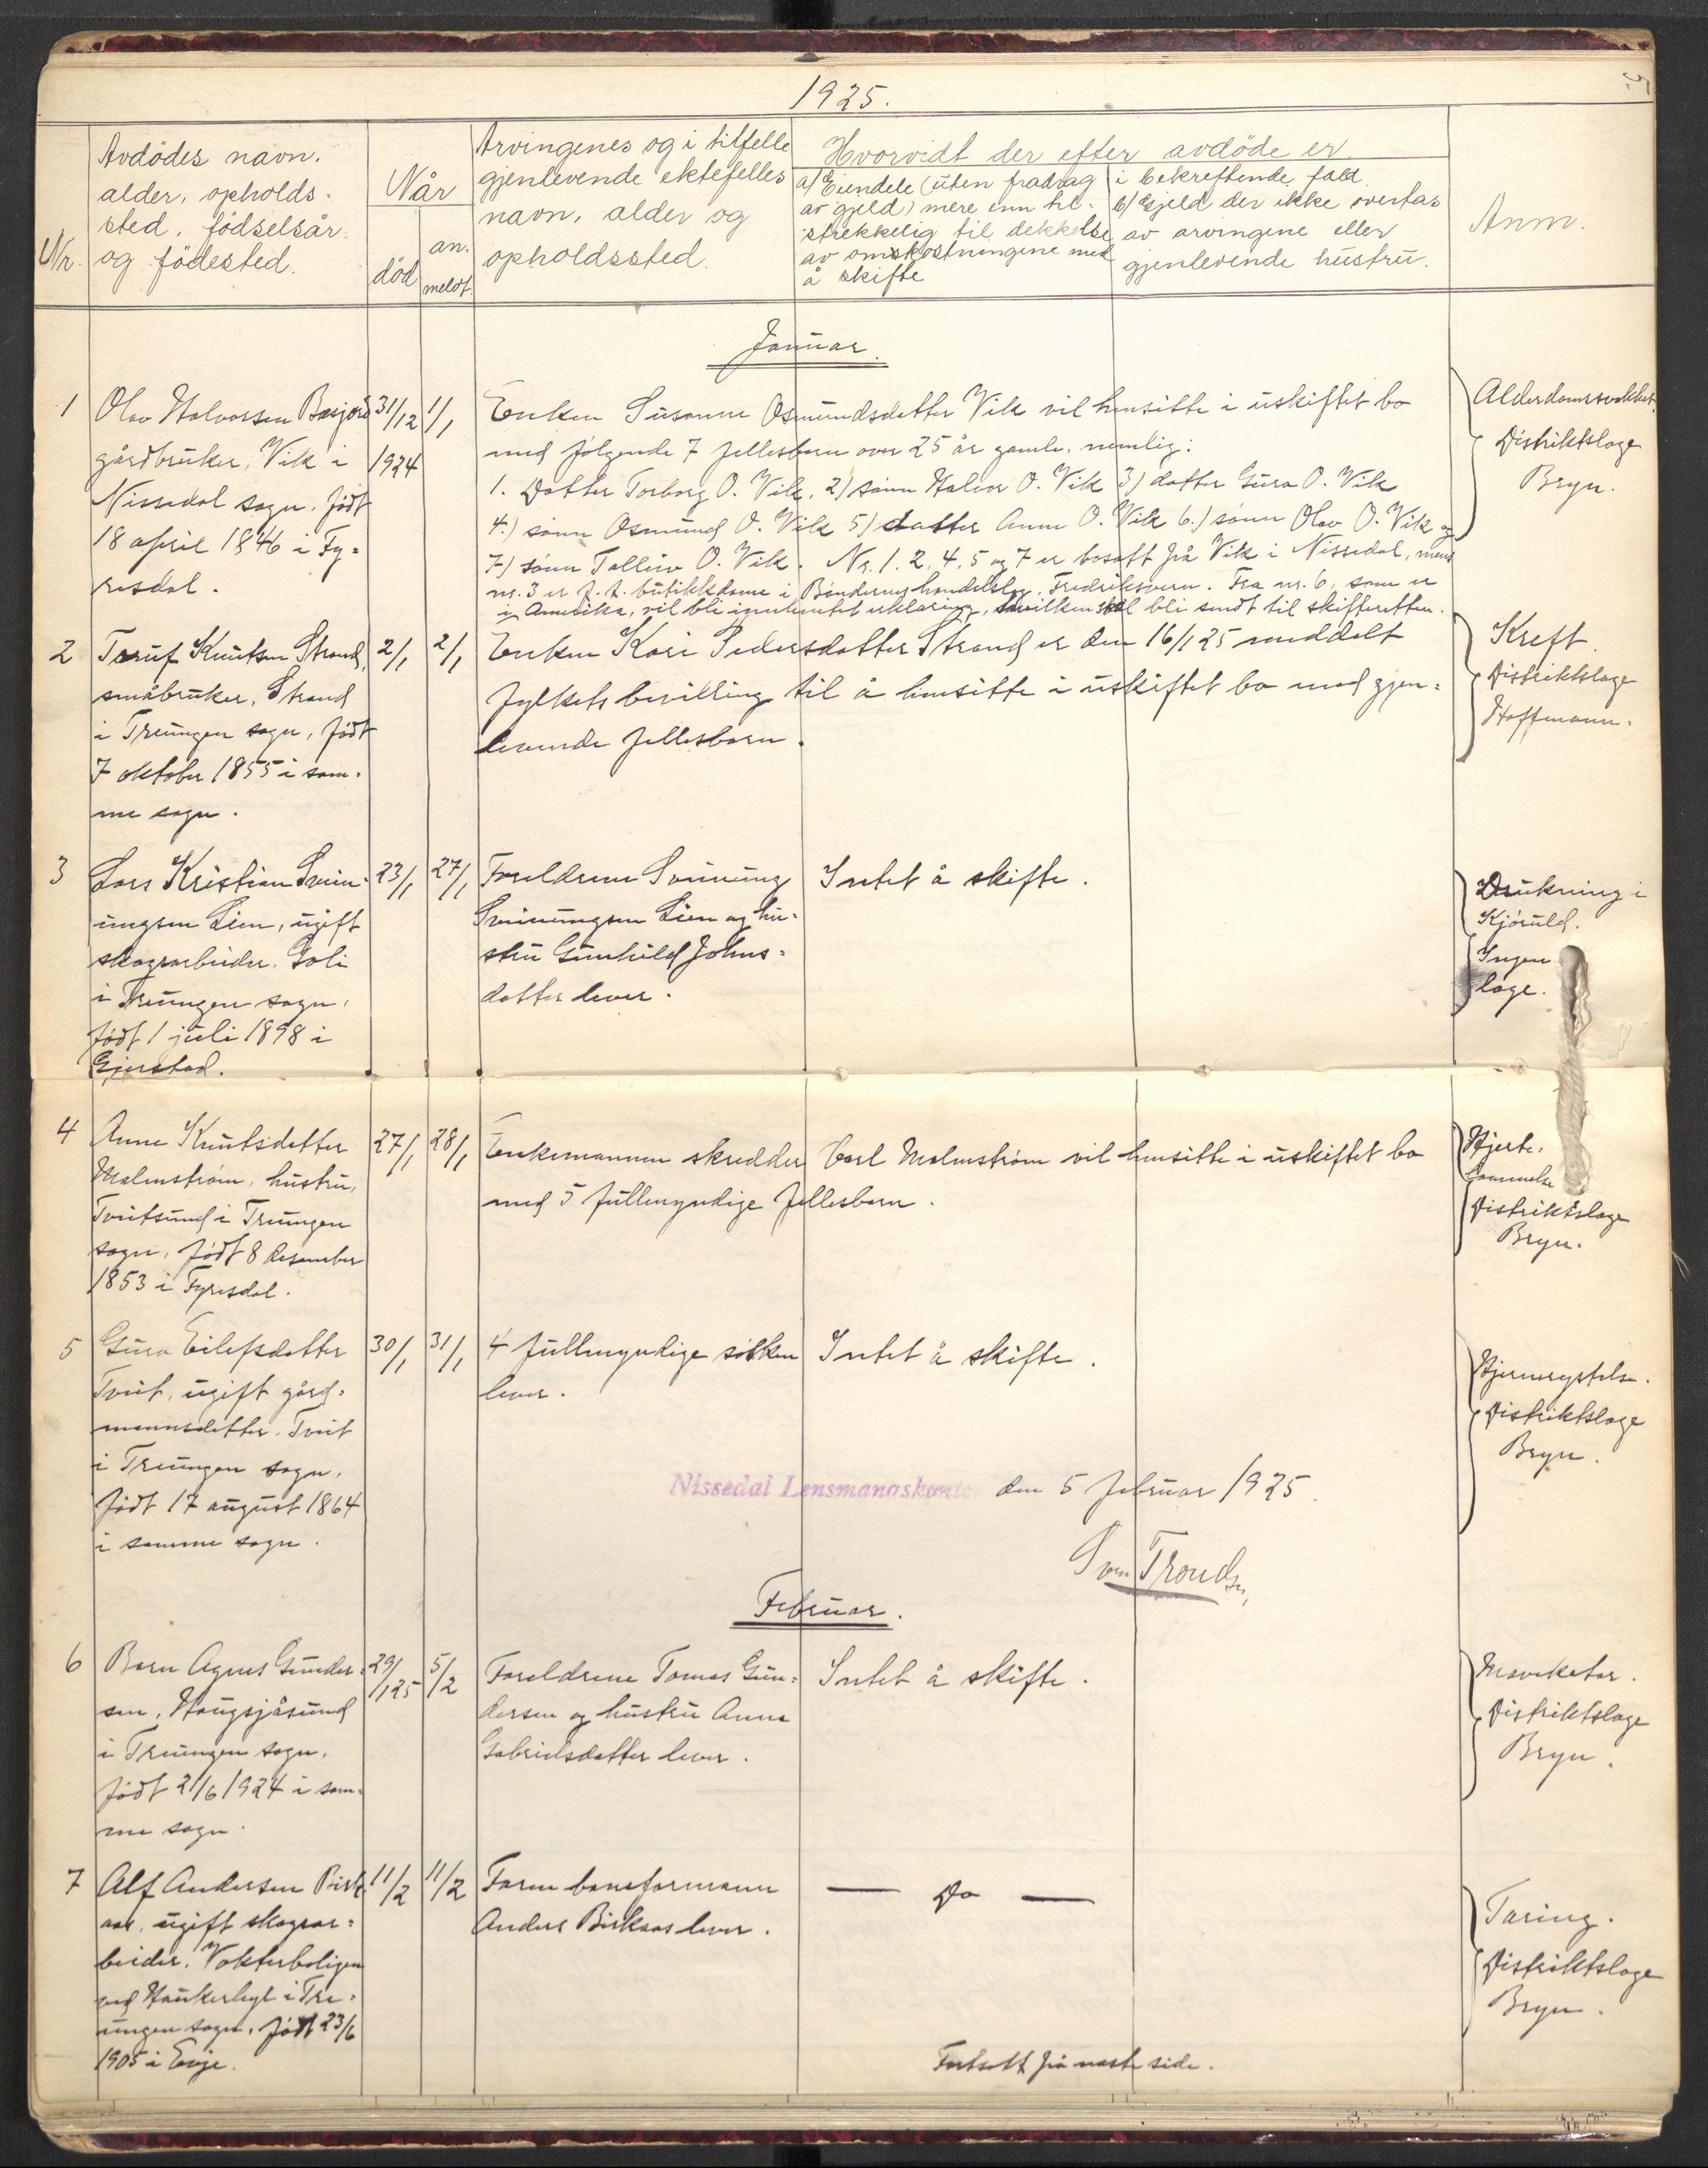 5.
1925.
Nr.
Avdödes navn,
alder, opholds-
sted, födselsår
og födested.
Når
död
an-
meldt.
Arvingenes og i tilfelle
gjenlevende ektefelles
navn, alder og
opholdssted.
Hvorvidt der efter avdöde er
a/ Eiendele (uten fradrag
av gjeld) mere enn til-
strekkelig til dekkelse
av omskostningene med
å skifte
i bekreftende fald
b/ Gjeld der ikke overtas
av arvingene eller
gjenlevende hustru.
Anm.
Januar.
1
Olav Halvorsen
gårdbruker, Vik i
Nissedal sogn, født
18 april 1846 i Fy-
resdal.
31/12
1924
1/1
Enken Susanne Osmundsdatter Vik vil hensitte i uskiftet bo
med følgende 7 fellesbarn over 25 år gamle, nemlig:
1. Datter Torborg O. Vik, 2) sønn Halvor O. Vik 3) datter Gura O. Vik
4.) sønn Osmund O. Vik 5) datter Anne O. Vik 6.) sønn Olav O. Vik og
7) sønn Folleiv O. Vik. Nr. 1. 2, 4, 5 og 7 er bosatt på Vik i Nissedal, mens
nr. 3 er f. t. butikkdame i Bøndernes handelslag, Fredriksvern. Fra nr. 6, som er
i Amerika, vil bli innhentet erklæring, hvilken skal bli sendt til skifteretten.
Alderdomssvakhet.
Distriktslæge
Bryn.
2
Knutsen Strand,
småbruker, Strand
i Treungen sogn, født
7 oktober 1855 i sam-
me sogn.
2/1
2/1
Enken Kari Pedersdatter Strand er den 16/1 25 meddelt
fylkets bevilling til å hensitte i uskiftet bo med gjen-
levende fellesbarn.
Kreft.
Distriktslæge
Hoffmann.
3
Lars Kristian Svein-
ungsen Lien, ugift
skogsarbeider. Soli
i Treungen sogn,
født 1 juli 1898 i
Gjerstad.
23/1
27/1
Foreldrene Sveinung
Sveinungsen Lien og hu-
stru Gunhild Johns-
datter lever.
Intet å skifte.
Drukning i
Ingen
læge.
4
Anne Knutsdatter
Malmstrøm, hustru,
Tveitsund i Treungen
sogn, født 8 desember
1853 i Fyresdal.
27/1
28/1
Enkemannen skredder Carl Malmstrøm vil hensitte i uskiftet bo
med 5 fullmyndige fellesbarn.
Hjerte-
lammelse
Distriktslæge
Bryn.
5
Gura Eilefsdatter
Tveit, ugift gård-
mannsdatter. Tveit
i Treungen sogn,
født 17 august 1864
i samme sogn.
30/1
31/1
4 fullmyndige søsken
lever.
Intet å skifte.
Hjernerystelse.
Distriktslæge
Bryn.
Nissedal Lensmannskontor den 5 februar 1925.
Sven Trondsen
Februar.
6
Barn Agnes Gunder-
sen, Haugsjåsund
i Treungen sogn.
født 21/6 1924 i sam-
me sogn.
29/1 25
5/2
Foreldrene Tomas Gun-
dersen og hustru Anne
Gabrielsdatter lever.
Intet å skifte.
Mavekatar.
Distriktslæge
Bryn.
7
Alf Andersen Birk-
aas, ugift skogsar-
beider. Vokterboligen
ved Haukerhyl i Tre-
ungen sogn, født 23/6
1905 i Evje.
11/2
11/2
Faren baneformann
Anders Birkaas lever.
— Do —
Tæring.
Distriktslæge
Bryn.
Fortsatt på neste side.